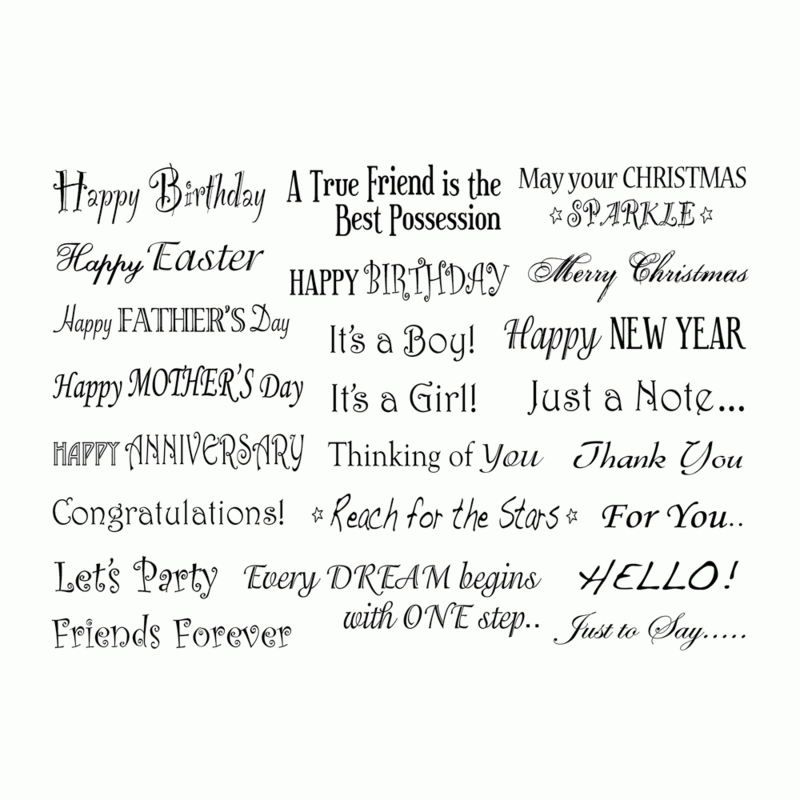 Happy Birthday
Happy Easter
Happy FATHER'S Day
Happy MOTHER'S Day
HAPPY ANNIVERSARY
Congratulations!
Let's Party
Friends Forever
A True Friend is the
Best Possession
HAPPY BIRTHDAY
It's a Boy!
It's a Girl!
Thinking of You
☆Reach for the Stars☆
Every DREAM begins
with ONE step..
May your CHRISTMAS
☆SPARKLE☆
Merry Christmas
Happy NEW YEAR
Just a Note...
Thank You
For You..
HELLO!
Just to Say.....